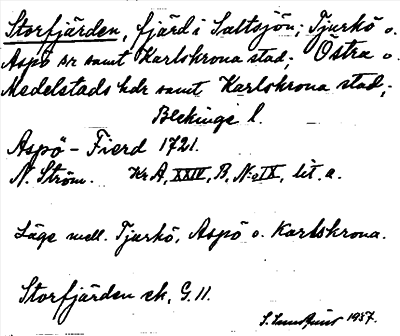 Storfjärden, fjärd i Saltsjön; Tjurkö o.
Aspö sr samt Karlskrona stad; Östra o.
Medelstads hdr samt Karlskrona stad;
Blekinge l.
Aspö-Fierd 1721.
N. Ström. Kr A, XXIV, B, N:o IX, lit. a.
Läge mell. Tjurkö, Aspö o. Karlskrona.
Storfjärden ek, G. 11.
1937.